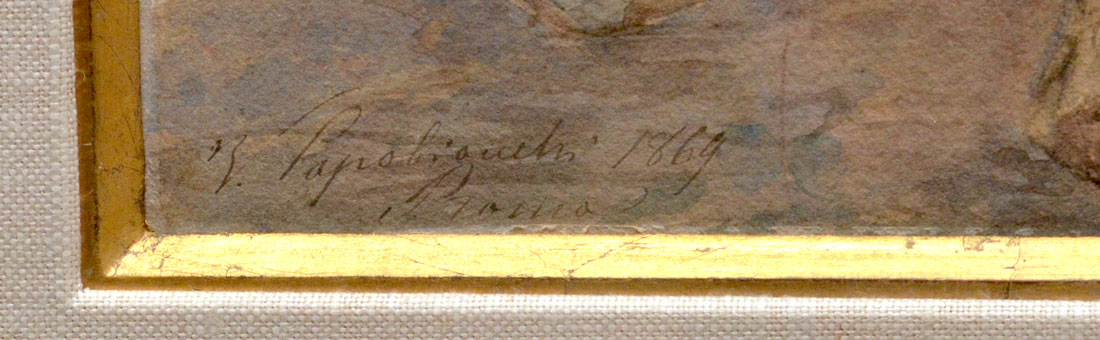 V. Capobianchi 1869
Roma